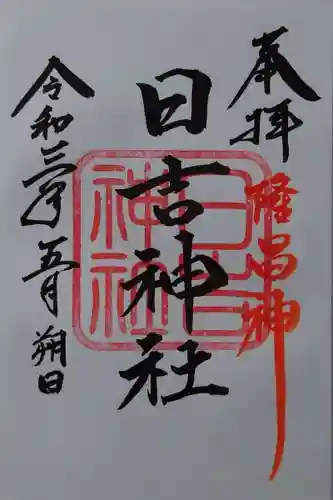 奉拝
隆昌神
日吉神社
日吉神社
令和三年五月朔日